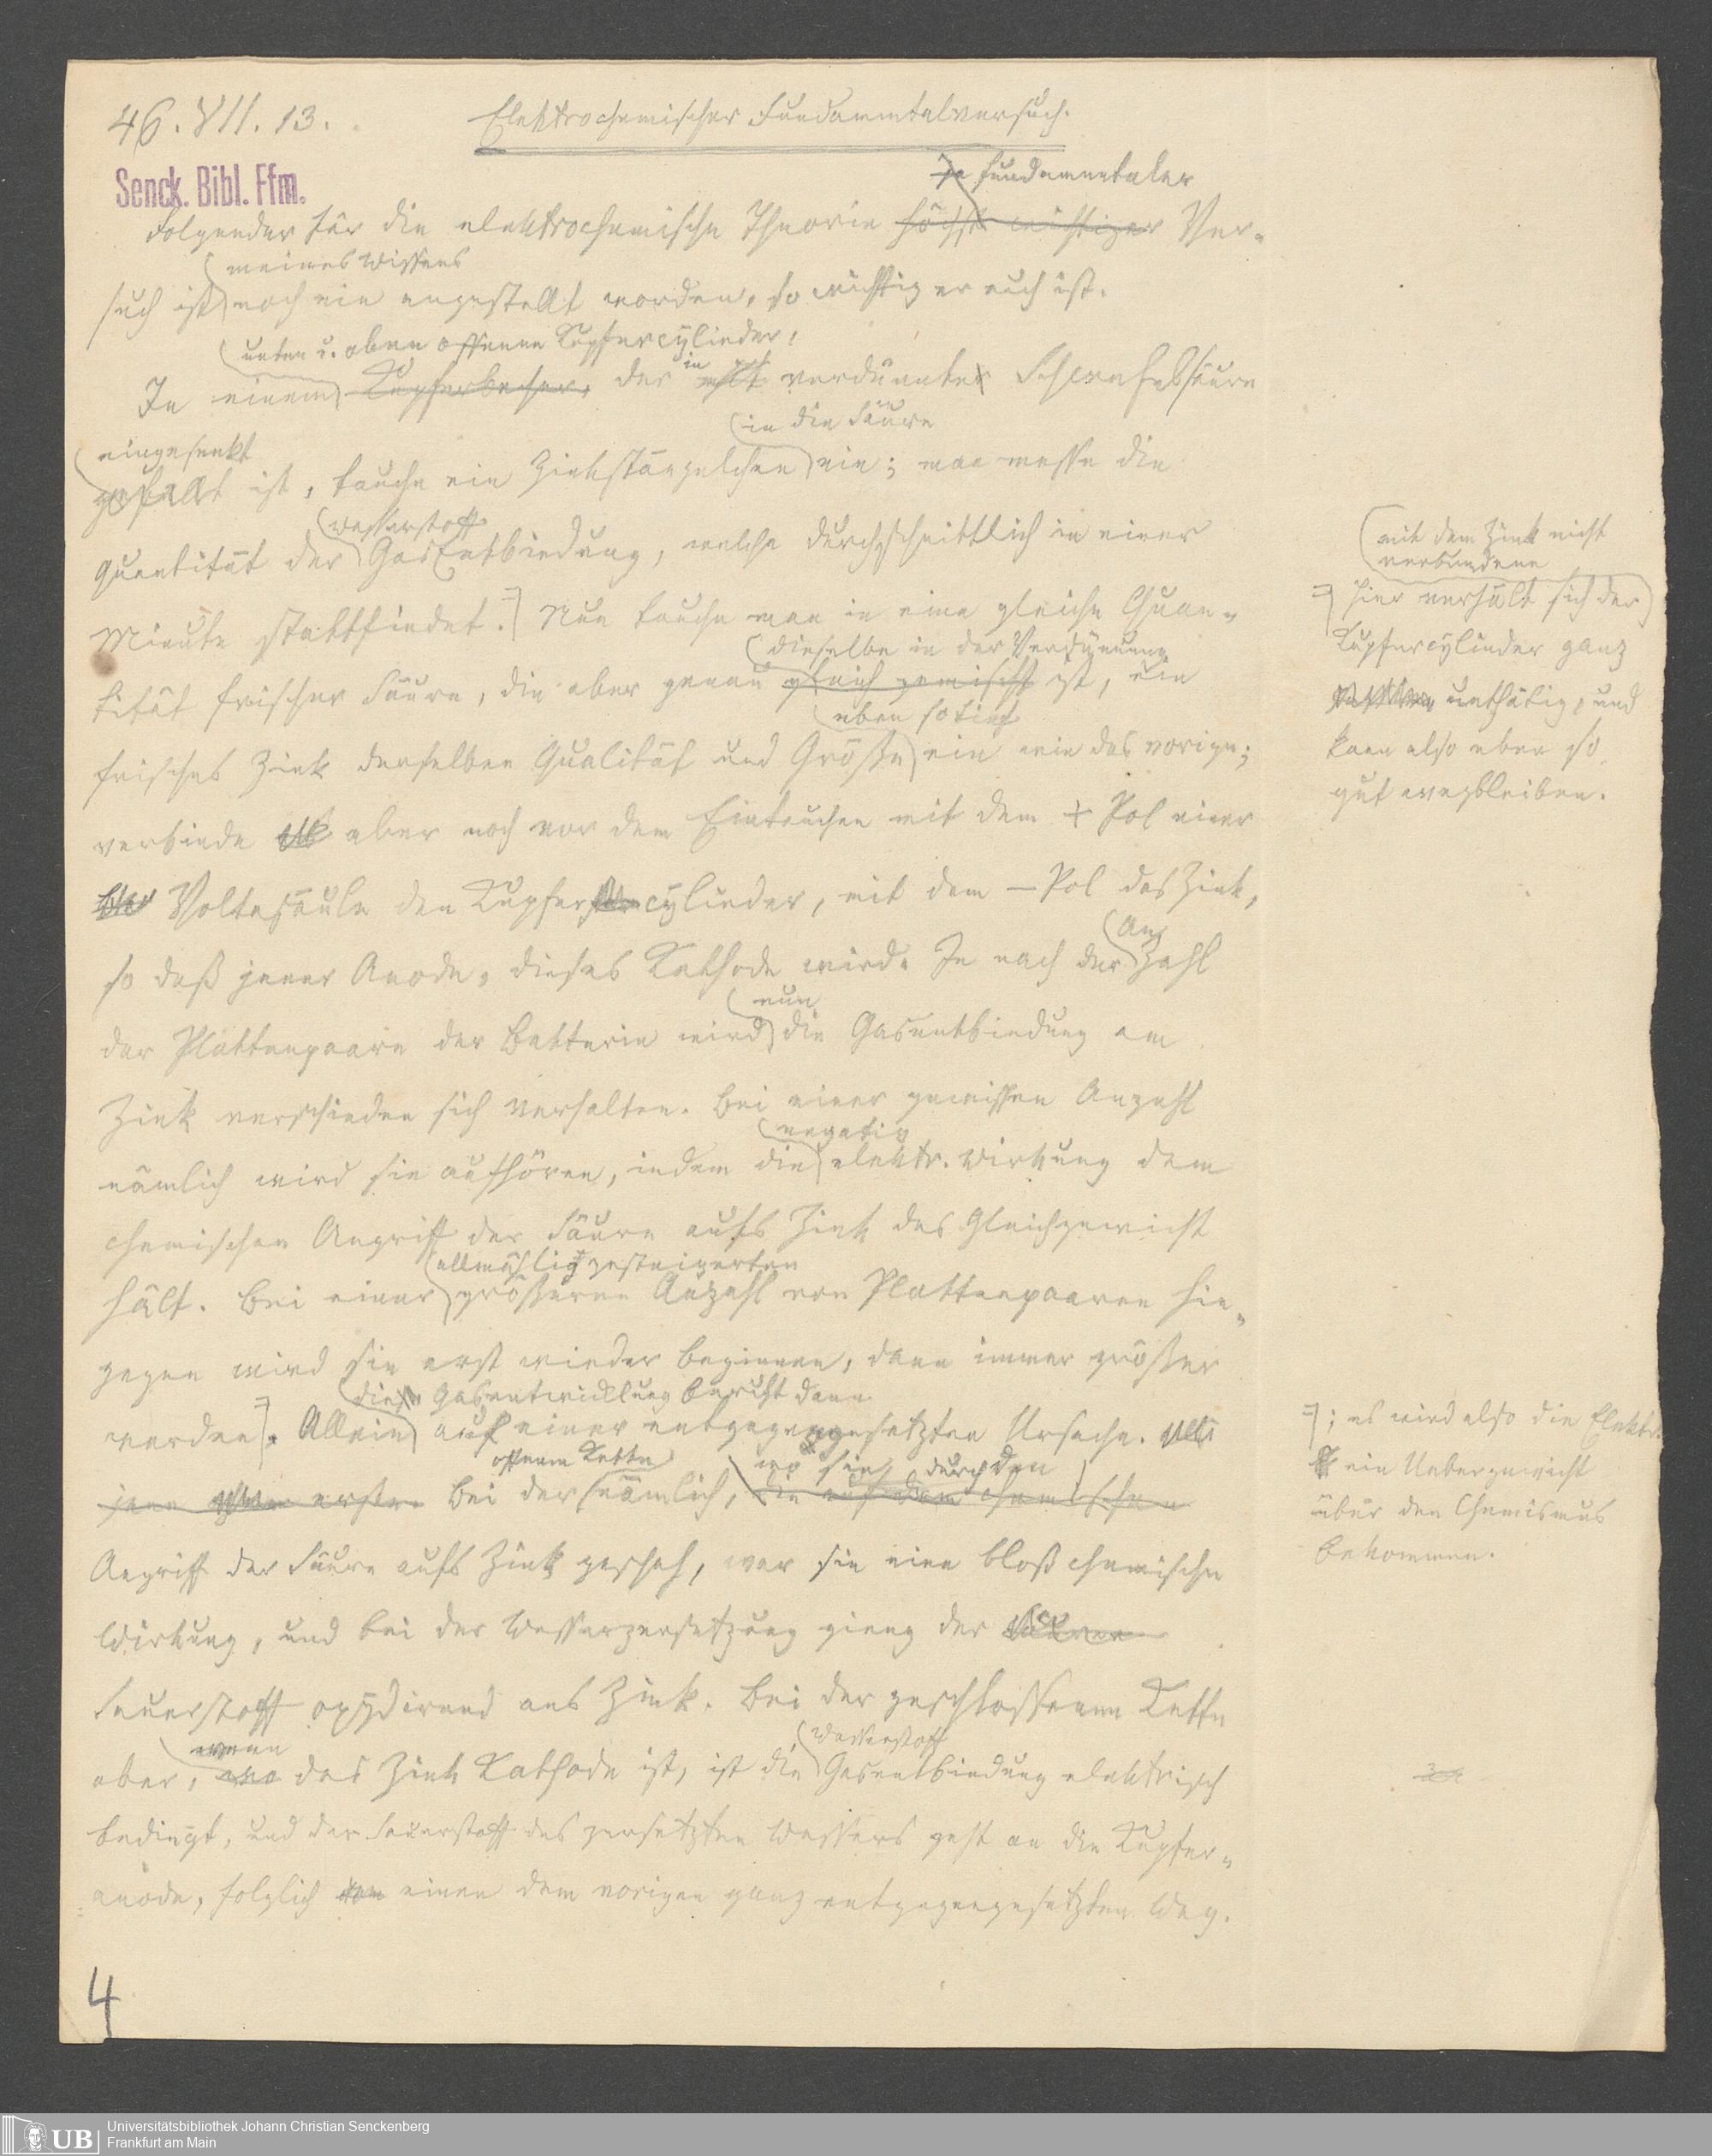 46. VII. 13.
Elektrochemischer Fundamentalversuch.
Senck. Bibl. Ffm.
fundamentaler
Folgender für die elektrochemische Theorie höchst wichtiger Ver-
meines Wissens
such ist noch nie angestellt worden, so wichtig er auch ist.
unten u. oben offenen Kupfercylinder,
In einem Kupferbecher, der in mit verdünnter Schwefelsäure
in die Säure
eingesenkt
gefüllt ist, tauche ein Zinkstängelchen ein; man messe die
Wasserstoff
Quantität der Gasentbindung, welche durchschnittlich in einer
Minute stattfindet. Nun tauche man in eine gleiche Quan-
dieselbe in der Verdünnung
tität frischer Säure, die aber genau gleich gemischt ist, ein
eben so tief
frisches Zink derselben Qualität und Größe ein wie das vorige;
verbinde aber noch vor dem Eintauchen mit dem + Pol einer
Voltasäule den Kupfercylinder, mit dem — Pol das Zink,
An
so daß jener Anode, dieses Kathode wird. Je nach der Zahl
nun
der Plattenpaare der Batterie wird die Gasentbindung am
Zink verschieden sich verhalten. Bei einer gewissen Anzahl
negativ
nämlich wird sie aufhören, indem die elektr. Wirkung dem
chemischen Angriff der Säure aufs Zink das Gleichgewicht
allmählig gesteigerten
hält. Bei einer größeren Anzahl von Plattenpaaren hin-
gegen wird sie erst wieder beginnen, dann immer größer
die Gasentwicklung beruht dann
werden. Allein auf einer entgegengesetzten Ursache.
offenen Kette
wo sie durch den
jene erstere Bei der nämlich, die auf dem chemischen
Angriff der Säure aufs Zink geschah, war sie eine bloß chemische
Wirkung, und bei der Wasserzersetzung gieng der
Sauerstoff oxydirend ans Zink. Bei der geschlossenen Kette
wenn
Wasserstoff
aber, wo das Zink Kathode ist, ist die Gasentbindung elektrisch
bedingt, und der Sauerstoff des zersetzten Wassers geht an die Kupfer-
anode, folglich einen dem vorigen ganz entgegengesetzten Weg.
mit dem Zink nicht
verbundene
hier verhält sich der
Kupfercylinder ganz
unthätig, und
kann also eben so
gut wegbleiben.
; es wird also die Elektr.
ein Uebergewicht
über den Chemismus
bekommen.
4
UB
Universitätsbibliothek Johann Christian Senckenberg
Frankfurt am Main